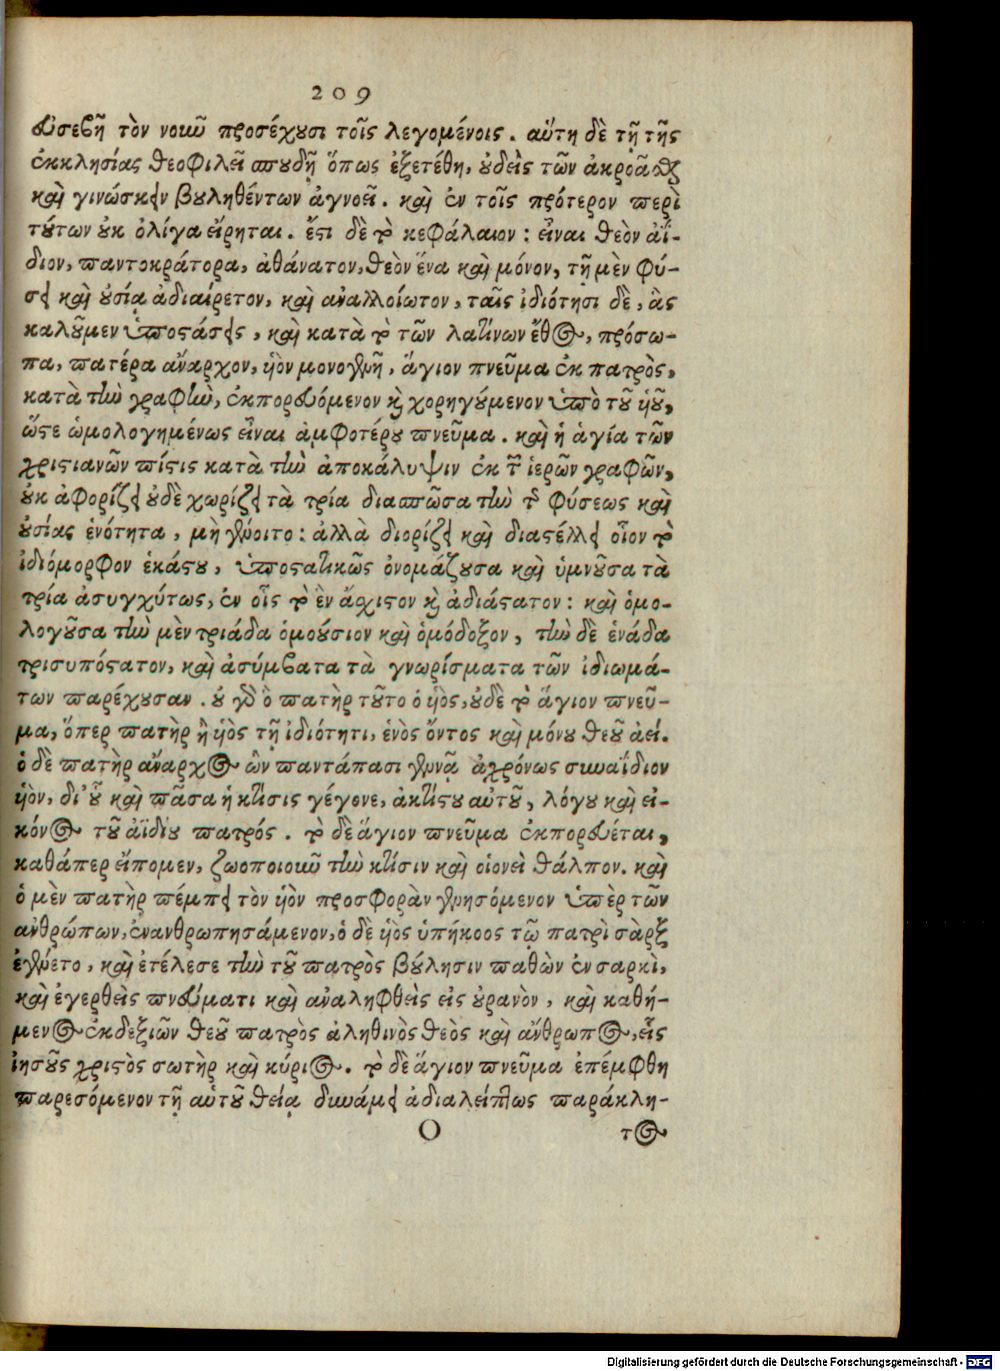 209
εὐσεβῆ τὸν νοιῶ προσέχουσι τοῖς λεγομένοις. αὕτη δὲ τῇ τῆς
ἐκκλησίας θεοφιλεῖ σπουδῇ ὅπως ἐξετέθη, οὐδεὶς τῶν ἀκροᾶσθαι
καὶ γινώσκειν βουληθέντων ἀγνοεῖ. καὶ ἐν τοῖς πρότερον περὶ
τούτων οὐκ ὀλίγα εἴρηται. ἔστι δὲ τὸ κεφάλαιον: εἶναι θεὸν ἀΐ-
διον, παντοκράτορα, ἀθάνατον, θεὸν ἕνα καὶ μόνον, τῇ μὲν φύ-
σει καὶ οὐσίᾳ ἀδιαίρετον, καὶ ἀναλλοίωτον, ταῖς ἰδιότησι δὲ, ἃς
καλοῦμεν ὑποστάσεις, καὶ κατὰ τὸ τῶν λατίνων ἔθος, πρόσω-
πα, πατέρα ἄναρχον, ὑὸν μονογενῆ, ἅγιον πνεῦμα ἐκ πατρὸς,
κατὰ τὴν γραφὴν, ἐκπορευόμενον καὶ χορηγούμενον ὑπὸ τοῦ ὑοῦ,
ὥστε ὡμολογημένως εἶναι ἀμφοτέρου πνεῦμα. καὶ ἡ ἁγία τῶν
χριστιανῶν πίστις κατὰ τὴν ἀποκάλυψιν ἐκ τῶν ἱερῶν γραφῶν,
οὐκ ἀφορίζει οὐδὲ χωρίζει τὰ τρία διασπῶσα τὴν τῆς φύσεως καὶ
οὐσίας ἑνότητα, μὴ γένοιτο: ἀλλὰ διορίζει καὶ διαστέλλει οἷον τὸ
ἰδιόμορφον ἑκάστου, ὑποστατικῶς ὀνομάζουσα καὶ ὑμνοῦσα τὰ
τρία ἀσυγχύτως, ἐν οἷς τὸ ἓν ἄχιστον καὶ ἀδιάστατον: καὶ ὁμο-
λογοῦσα τὴν μὲν τριάδα ὁμούσιον καὶ ὁμόδοξον, τὴν δὲ ἑνάδα
τρισυπόστατον, καὶ ἀσύμβατα τὰ γνωρίσματα τῶν ἰδιωμά-
των παρέχουσαν. οὐ γὰρ ὁ πατὴρ τοῦτο ὁ ὑὸς, οὐδὲ τὸ ἅγιον πνεῦ-
μα, ὅπερ πατὴρ ἢ ὑὸς τῇ ἰδιότητι, ἑνὸς ὄντος καὶ μόνου θεοῦ ἀεί.
ὁ δὲ πατὴρ ἄναρχος ὢν παντάπασι γεννᾷ ἀχρόνως συναΐδιον
ὑὸν, δι' οὗ καὶ πᾶσα ἡ κτίσις γέγονε, ἀκτίστου αὐτοῦ, λόγου καὶ εἰ-
κόνος τοῦ ἀϊδίου πατρός. τὸ δὲ ἅγιον πνεῦμα ἐκπορεύεται,
καθάπερ εἴπομεν, ζωοποιοιῶ τὴν κτίσιν καὶ οἱονεὶ θάλπον. καὶ
ὁ μὲν πατὴρ πέμπει τὸν ὑὸν προσφορὰν γενησόμενον ὑπὲρ τῶν
ἀνθρώπων, ἐνανθρωπησάμενον, ὁ δὲ ὑὸς ὑπήκοος τῷ πατρὶ σὰρξ
ἐγένετο, καὶ ἐτέλεσε τὴν τοῦ πατρὸς βούλησιν παθὼν ἐν σαρκὶ,
καὶ ἐγερθεὶς πνεύματι καὶ ἀναληφθεὶς εἰς οὐρανὸν, καὶ καθή-
μενος ἐκ δεξιῶν θεοῦ πατρὸς ἀληθινὸς θεὸς καὶ ἄνθρωπος, εἷς
ἰησοῦς χριστὸς σωτὴρ καὶ κύριος. τὸ δὲ ἅγιον πνεῦμα ἐπέμφθη
παρεσόμενον τῇ αὑτοῦ θείᾳ δυνάμει ἀδιαλείπτως παράκλη-
O τος
Digitalisierung gefördert durch die Deutsche Forschungsgemeinschaft - DFG